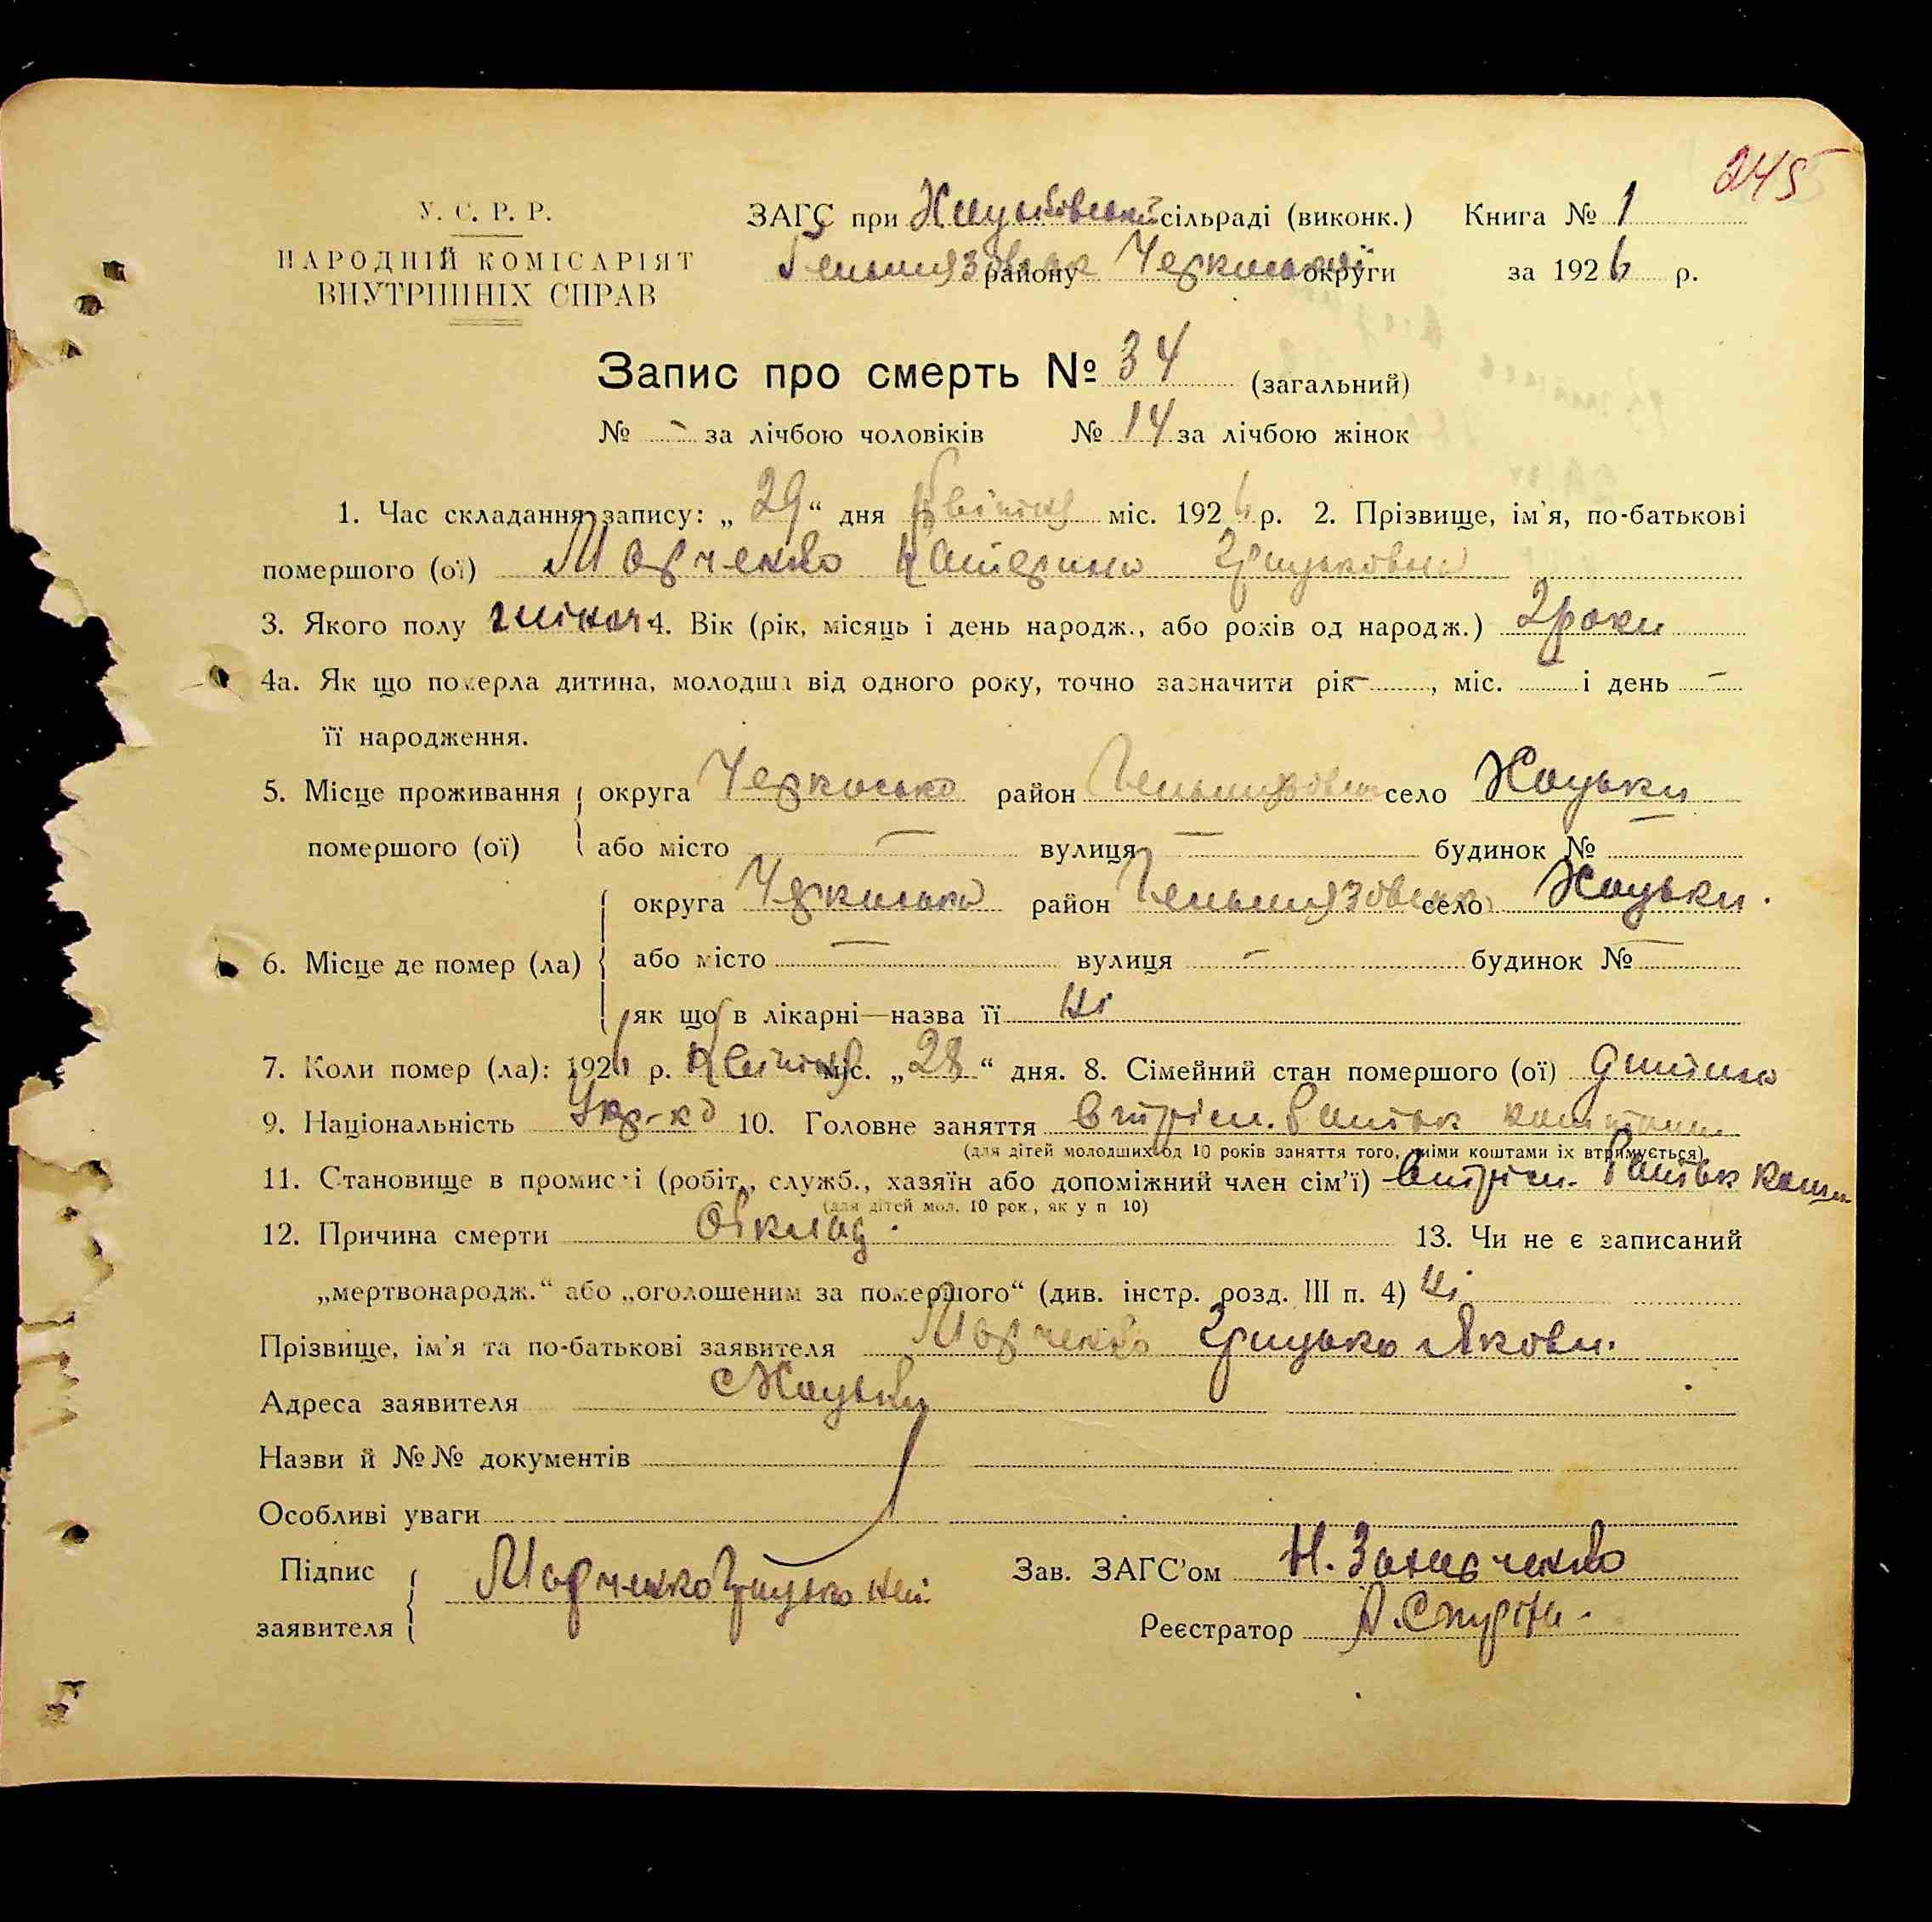 245
У. С. Р. Р.
НАРОДНІЙ КОМІСАРІЯТ
ВНУТРІШНІХ СПРАВ
ЗАГС при Хацьківській сільраді (виконк.) Книга № 1
Гельмязівськ району Черкаської округи за 1926 р.
Запис про смерть № 34 (загальний)
№ - за лічбою чоловіків № 14 за лічбою жінок
1. Час складання запису: „29“ дня Квітня міс. 1926 р. 2. Прізвище, ім'я, по-батькові
помершого (ої) Марченко Катерина Грицьковна
3. Якого полу жіноч 4. Вік (рік, місяць і день народж., або років од народж.) 2 роки
4а. Як що померла дитина, молодша від одного року, точно зазначити рік —, міс. і день —
її народження.
5. Місце проживання округа Черкаська район Гельмязівськ село Хацьки
помершого (ої) або місто — вулиця — будинок № —
округа Черкаська район Гельмязівськ село Хацьки.
6. Місце де помер (ла) або місто — вулиця — будинок № —
як що в лікарні—назва її ні
7. Коли помер (ла): 1926 р. Квітня міс. „28“ дня. 8. Сімейний стан помершого (ої) дитина
9. Національність Укр-ка 10. Головне заняття втрим. батьк коштами
(для дітей молодших од 10 років заняття того, чиїми коштами їх втримується)
11. Становище в промислі (робіт., служб., хазяїн або допоміжний член сім'ї) втрим. батьк кошт
(для дітей мол. 10 рок., як у п 10)
12. Причина смерти Обклад. 13. Чи не є записаний
„мертвонародж.“ або „оголошеним за померлого“ (див. інстр. розд. III п. 4) ні
Прізвище, ім'я та по-батькові заявителя Марченко Грицько Якови.
Адреса заявителя с Хацьки
Назви й №№ документів
Особливі уваги
Підпис Марченко Грицько Зав. ЗАГС'ом Н.
заявителя Реєстратор